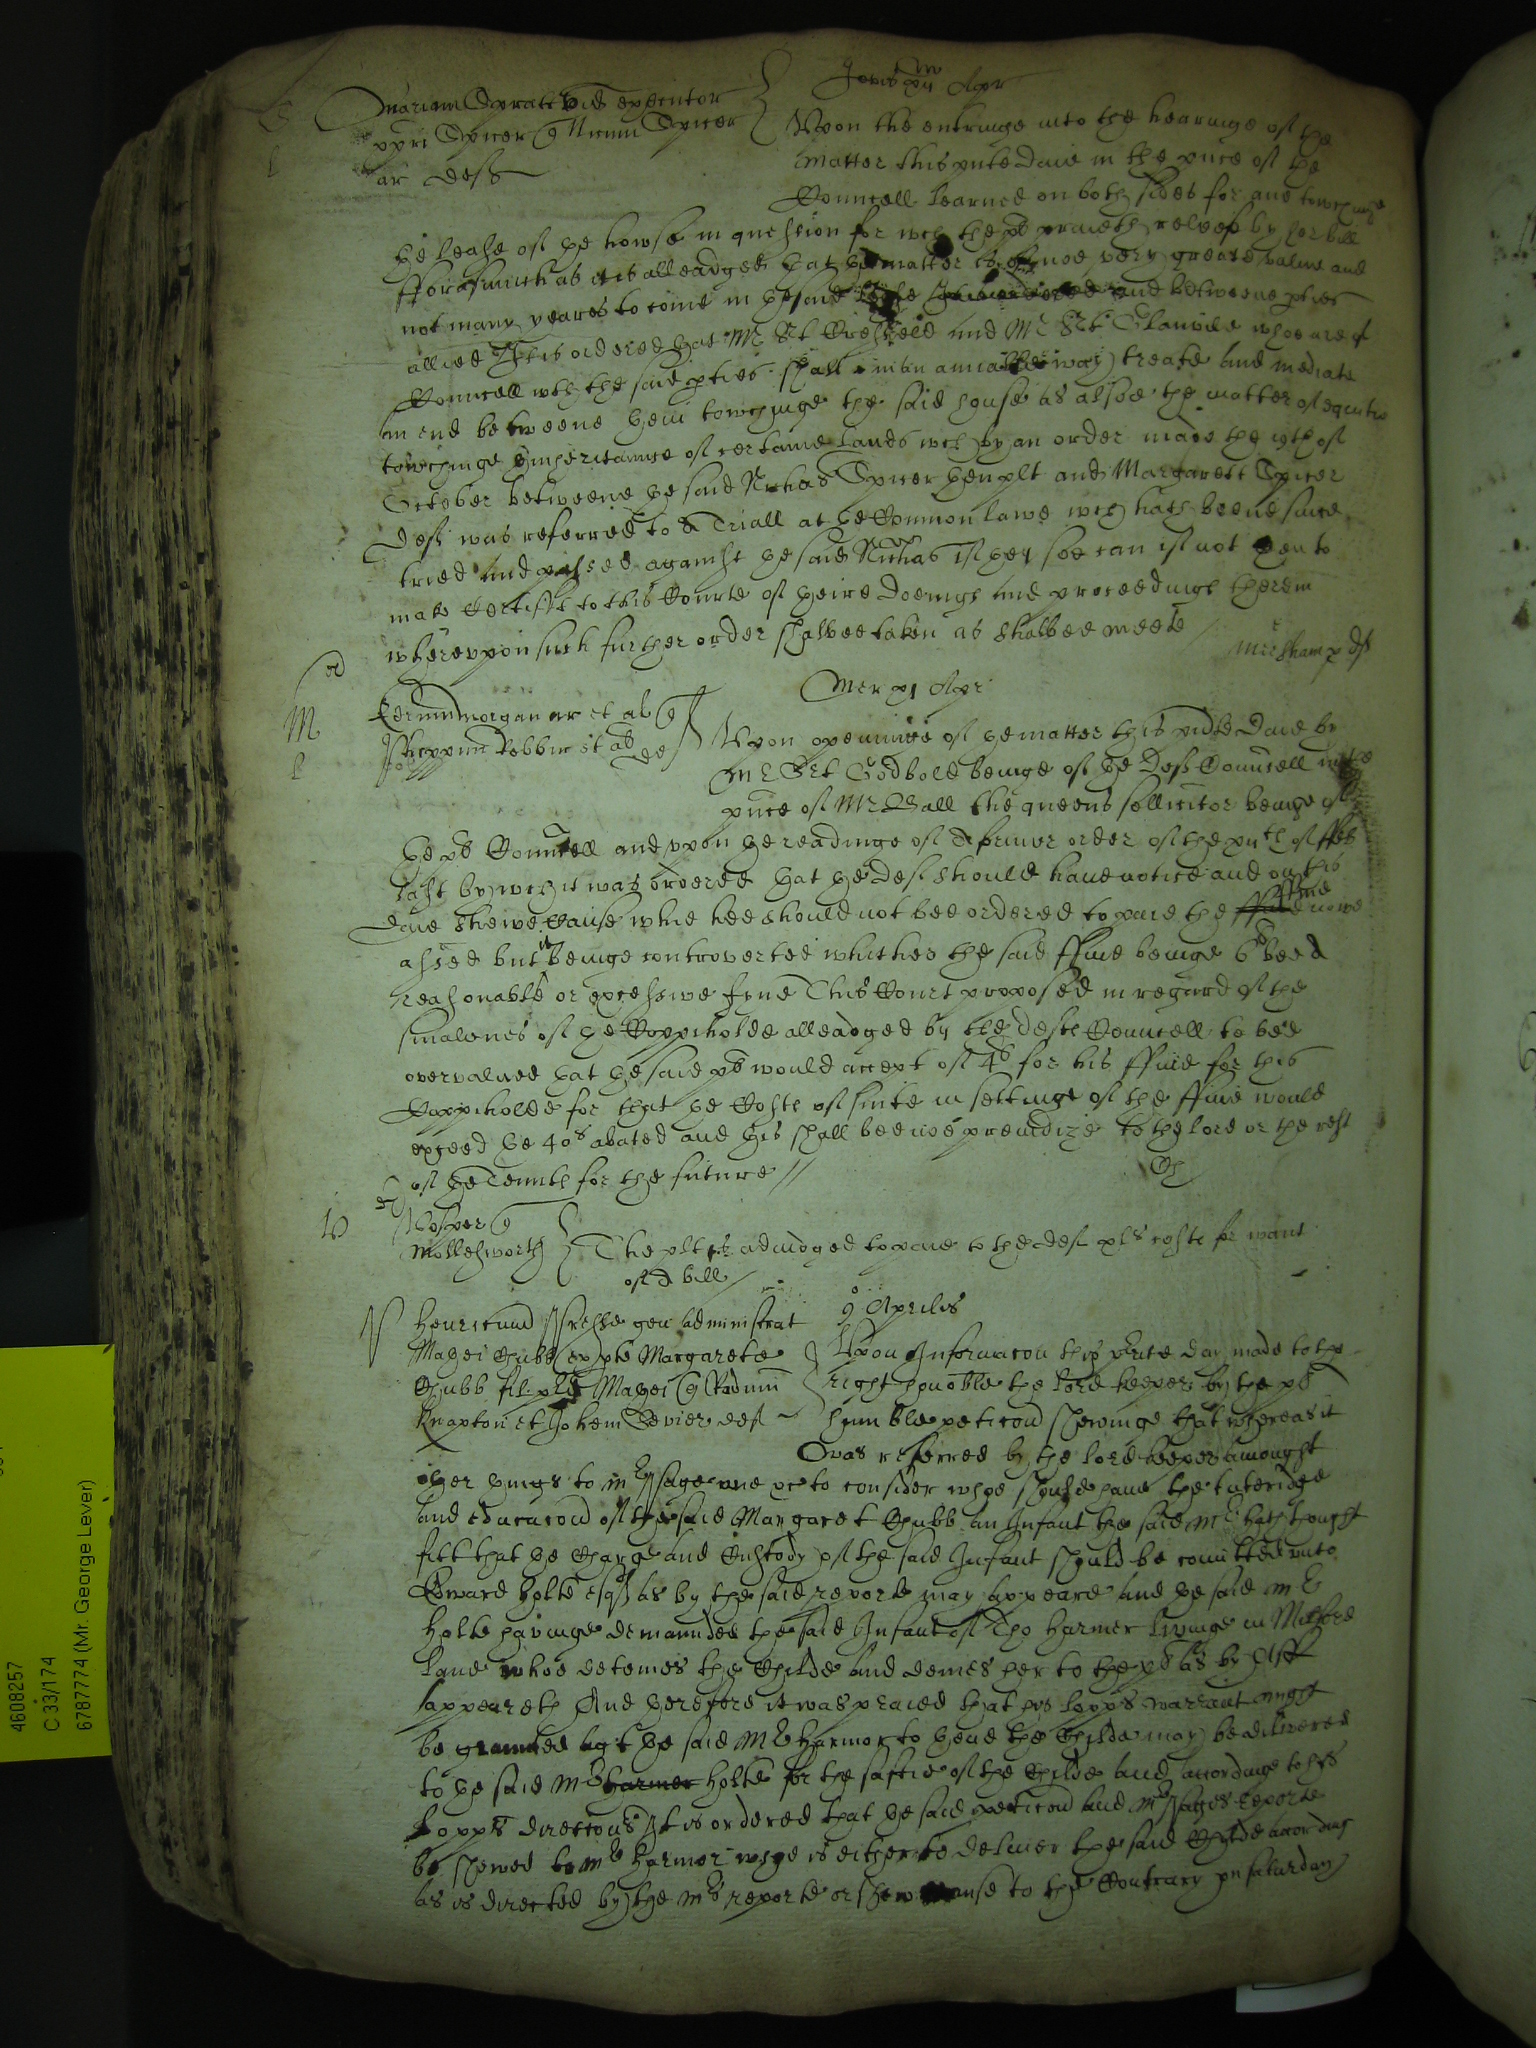 Jovis xii Apr
Mariam Spratt vid executor
Spicer Spicer
ar defts
Upon the entringe into the hearinge of the
matter this pnte Daie in the pnce of the
Councell learned on both sides for and towchinge
the lease of the howse in question for wch the pl praieth releef by her bill
Fforasmuch as it is alleadged that the matter is of noe very greate value and
not many yeares to come in the said lease and betweene pties
allied It is ordered that Mr Srt and Mr Srt Glanvile whoe are of
Councell wth the said pties shall in an amicable way treate and mediate
an end betweene them towchinge the said house as alsoe the matter of equitie
towchinge the inheritance of certaine lands wch by an order made the 19th of
October betweene the said Nichas Spicer then plt and Margarett Spicer
deft was referred to a Triall at the Common lawe wch hath beene since
tried and passed against the said Nichas if they soe can if not then to
make Certifft to this Courte of theire doeings and proceedings therein
whereuppon such further order shalbee taken as shalbee meete
Mer xi Apr
morgan ar et al
Robbin et al de
Upon openinge of the matter this pnte Daie by
Mr Srt Godbold beinge of the Defts Councell in the
pnce of Mr Hall the queens sollicitor beinge of
the pls Councell and upon the readinge of a former order of the xiith of ffeb
last by wch it was ordered that the deft should have notice and on this
daie shewe cause whie hee should not bee ordered to paie the ffine nowe
assed but it beinge controverted whither the said ffine beinge 6l bee a
reasonable or excessive fyne This Court proposed in regard of the
smalenes of the Coppiholde alleadged by the defts Councell to bee
overvalued that the said pl would accept of 4l for his ffine for this
Coppiholde for that the Costs of suite in settinge of the ffine would
exceed the 40s abated and this shall bee noe preiudize to the lord or the rest
of the Tennts for the future //
Vosper
Mollesworth
The plt is adiudged to paie to the deft xls costs for want
of a bill
9 Aprilis
Henricum gen administrat
Magri Chubb pls Margarete
Chubb fil Magri Radum
Knapton et Johem Sevier def
Upon Informacon this pnte day made to the
right honoble the lord keeper by the pls
humble peticon shewinge that whereas it
was referred by the lord keeper amongst
other things to mr Page one &c to consider whoe should have the tuteridge
and educacon of the said Margaret Chubb an Infant the said Mr hath thought
fitt that the Charge and Custody of the said Infant should be comitted unto
Edward Holte esqr as by the said reporte may appeare and the said Mr
Holte havinge demaunded the said Infant of Tho Harmer livinge in Milford
lane whoe deteines the Childe and denies her to the pls as by Aff
appeareth And therefore it was praied that his lopps warrant might
be graunted agt the said Mr Harmor to thend the Childe may be delivered
to the said Mr Harmer Holte for the saftie of the Childe and accordinge to his
lopps direccons It is ordered that the said peticon and Mr Pages reporte
be shewed to Mr Harmor whoe is either to deliver the said Childe according
as is directed by the Mrs reporte or shew cause to the Contrary on saturday
4608257
C 33/174
67877774 (Mr. George Lever)